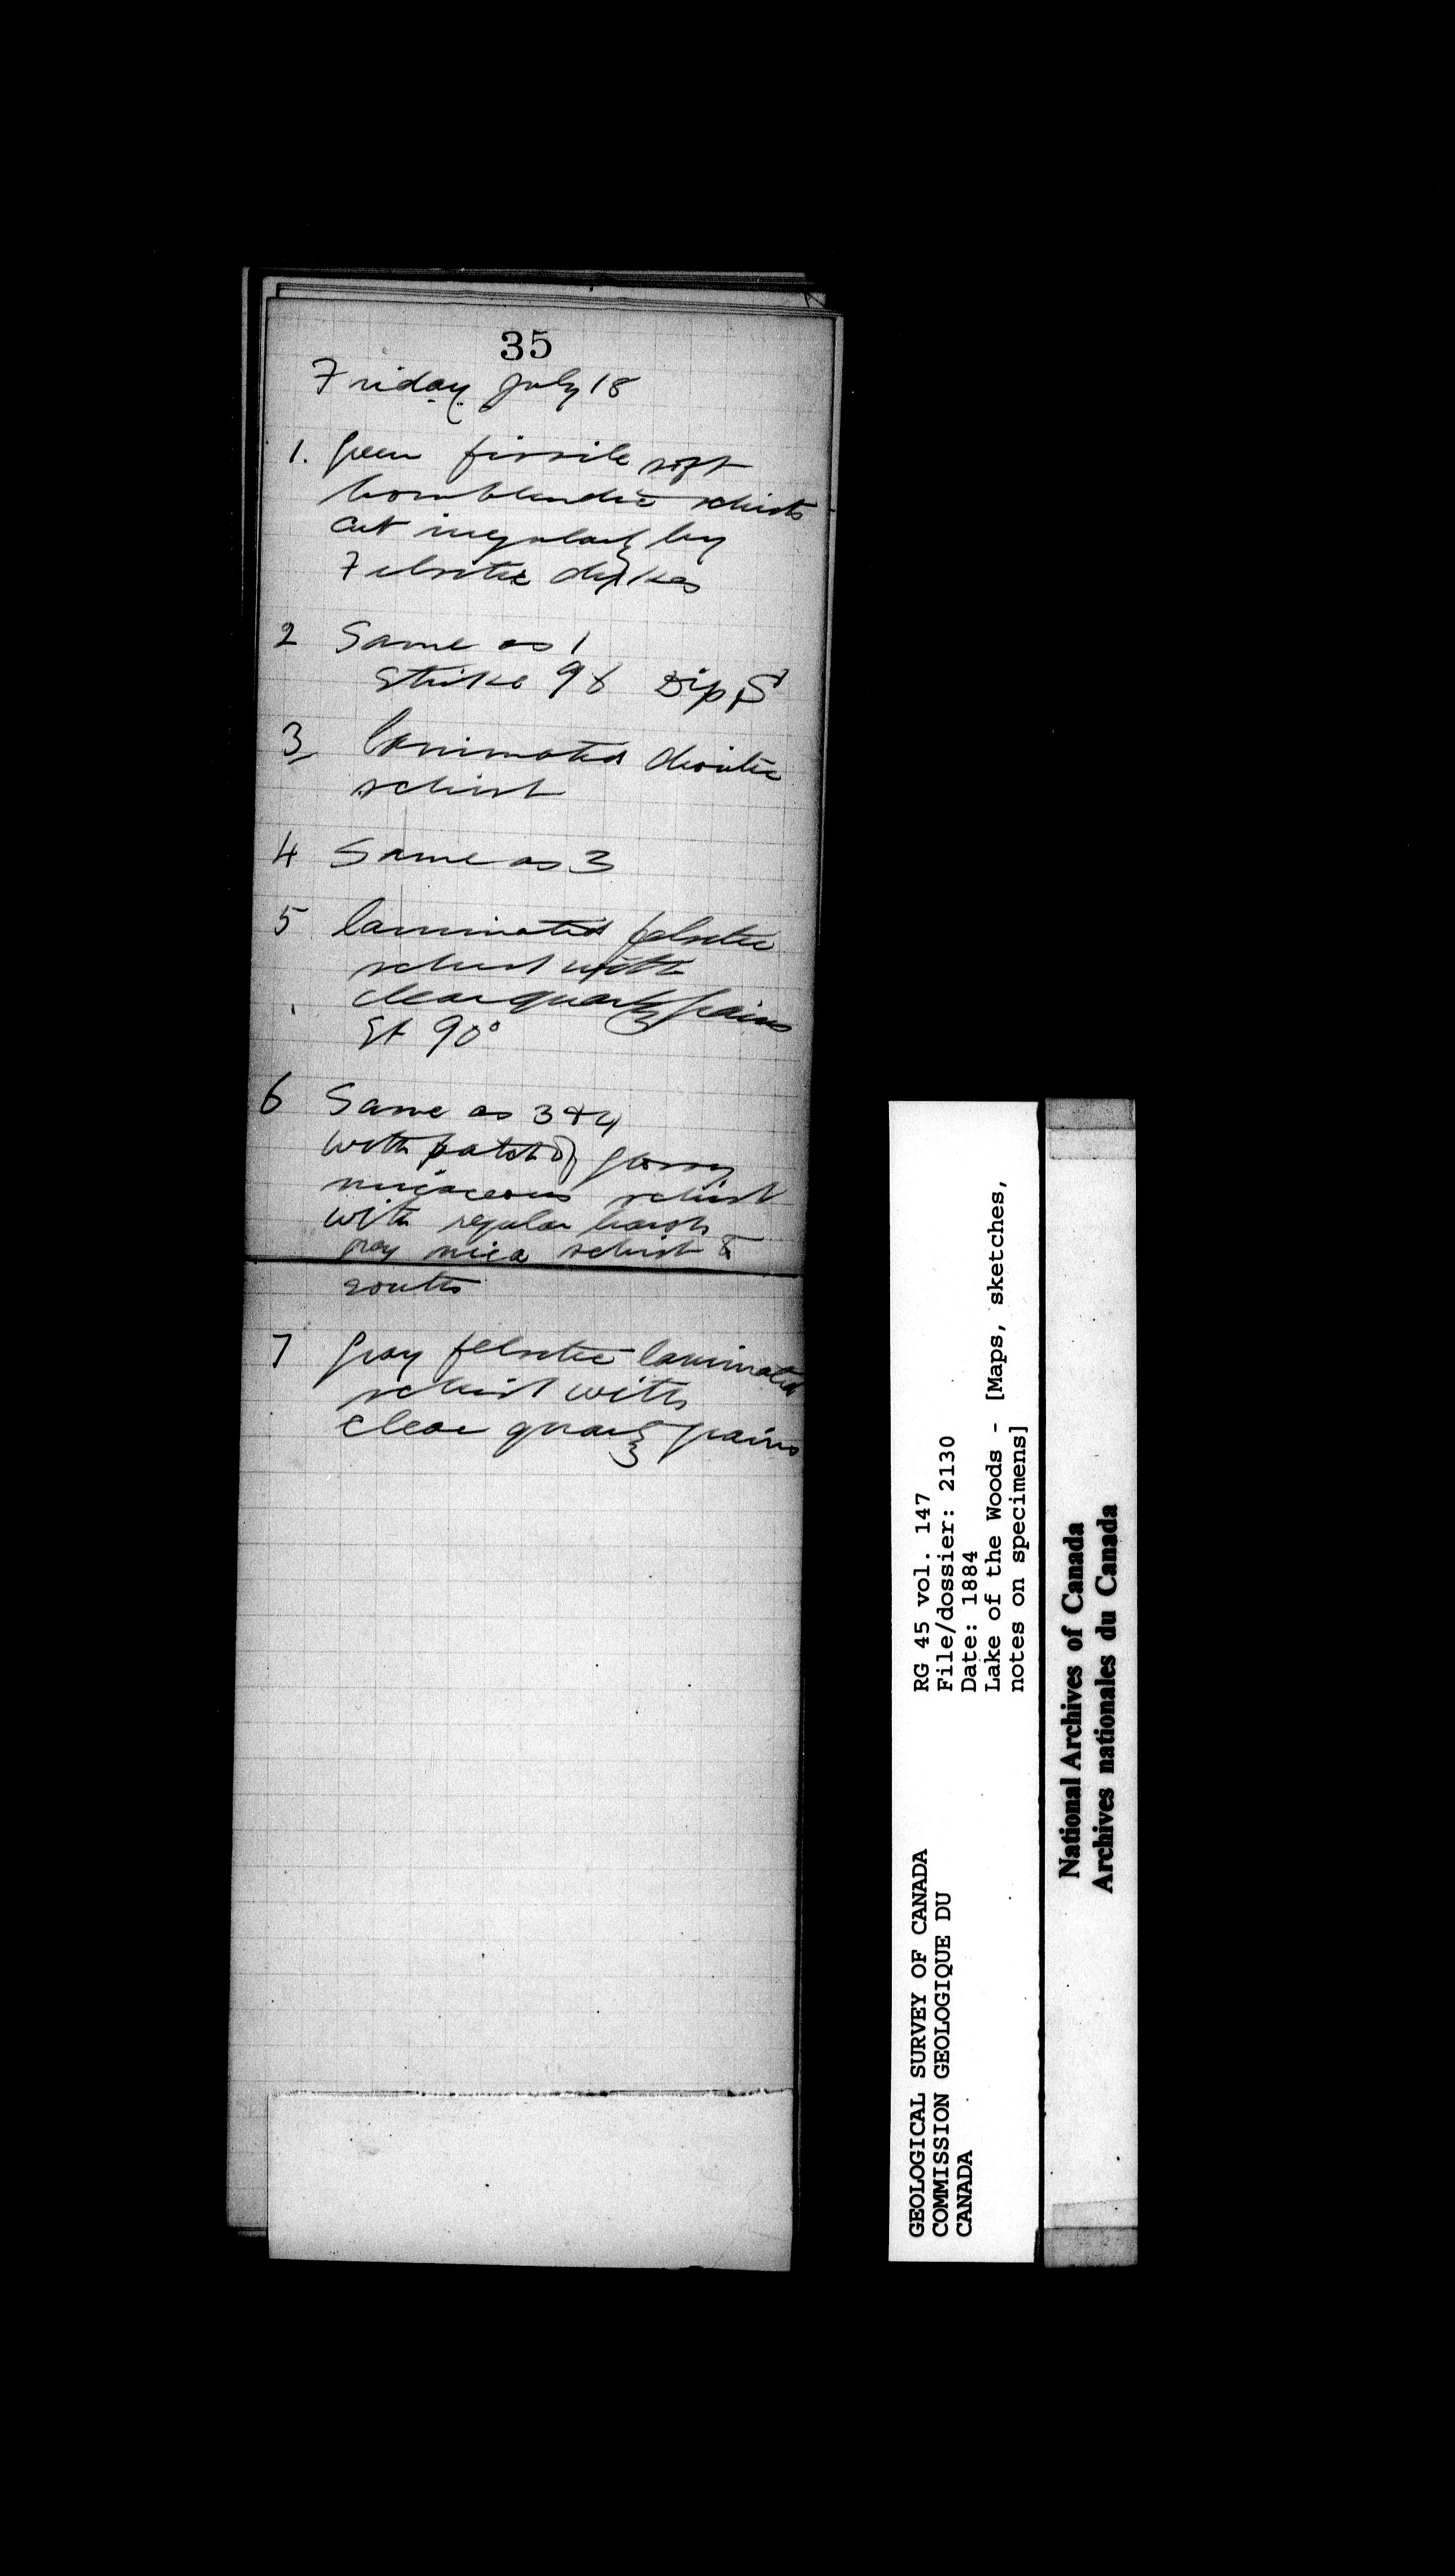 35
Friday July 18
1. Green fissile soft
hornblendic schists
cut irregularly by
Felsitic dykes
2 Same as 1
Strike 98 Dip S
3 laminated dioritic
schist
4 Same as 3
5 laminated felsitic
schist with
clear quartz grains
St 90°
6 Same as 3 & 4
with patch of glossy
micaceous schist
with regular harsh
gray mica schist to
south
7 Gray felsitic laminated
schist with
clear quartz grains
GEOLOGICAL SURVEY OF CANADA
COMMISSION GEOLOGIQUE DU
CANADA
RG 45 vol. 147
File/dossier: 2130
Date: 1884
Lake of the Woods - [Maps, sketches,
notes on specimens]
National Archives of Canada
Archives nationales du Canada